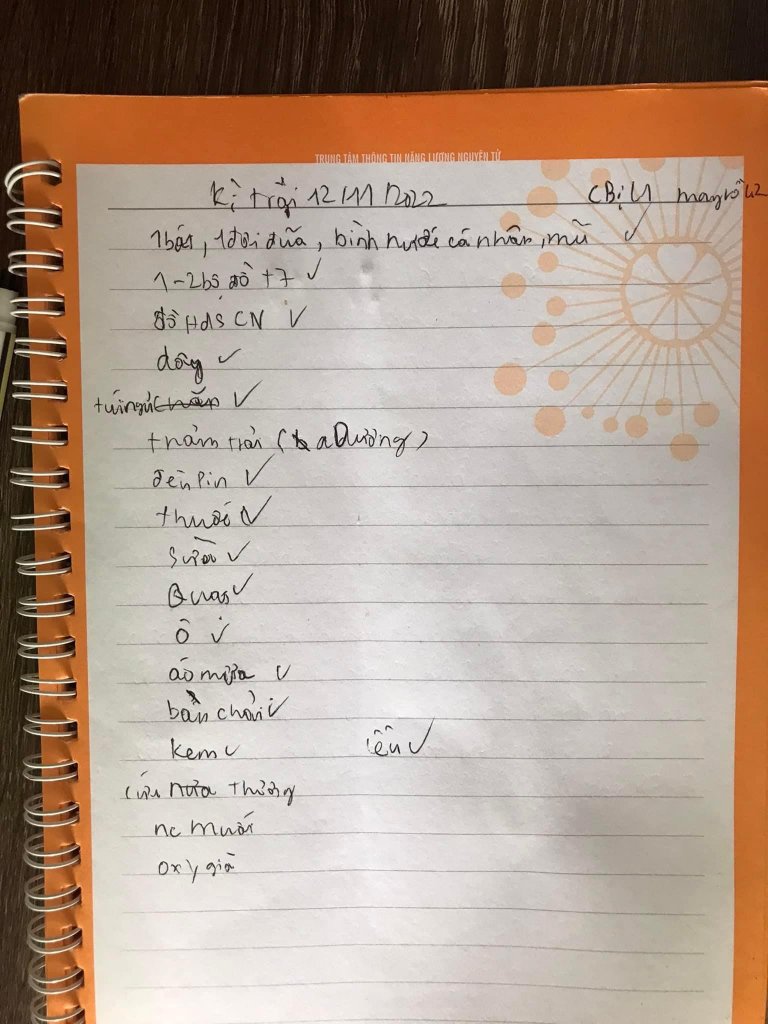 TRUNG TÂM THÔNG TIN NĂNG LƯỢNG NGUYÊN TỬ
Kì trại 12/11/2022
1 bát, 1 đôi đũa, bình nước cá nhân, mũ ✓
1-2 bộ đồ +7 ✓
đồ HĐS CN ✓
dây ✓
túi ngủ ✓
thảm trải ( a Dương)
đèn pin ✓
thuốc ✓
sưởi ✓
Quạt ✓
Ô ✓
áo mưa ✓
bàn chải ✓
Kem ✓ lều ✓
thương
nc muối
oxy già